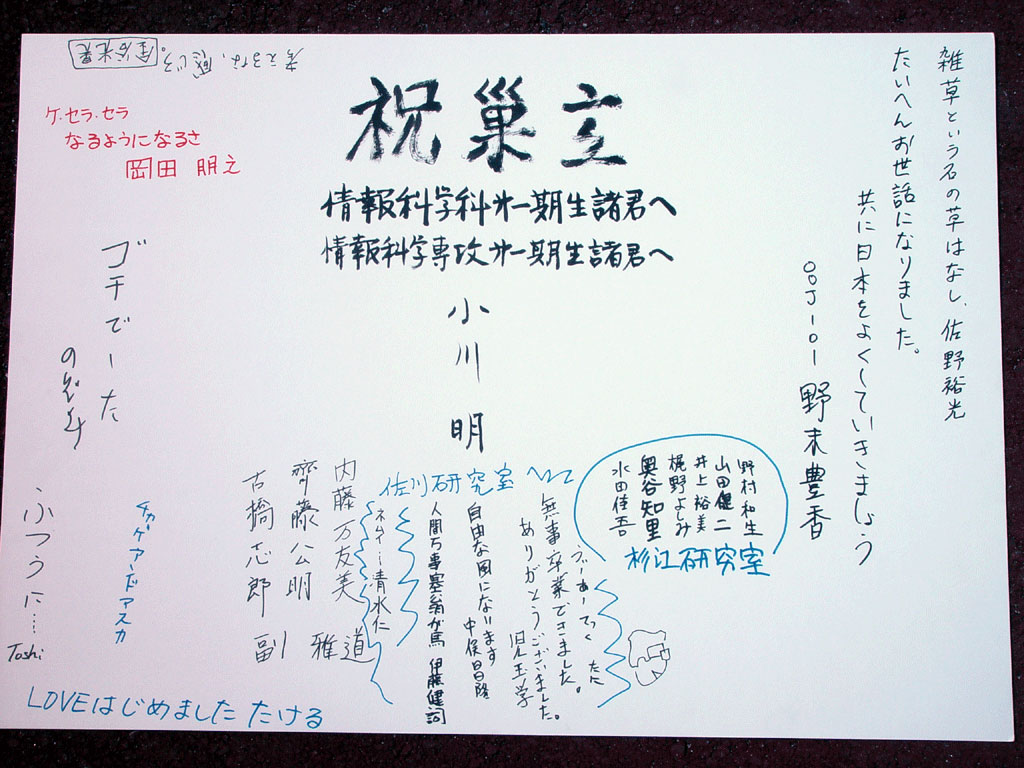 祝巣立
情報科学科オ一期生諸君へ
情報科学専攻オ一期生諸君へ
小川 明
雑草という名の草はなし、佐野裕光
たいへんお世話になりました。
共に日本をよくしていきましょう
00J-101 野末豊香
考えるな、感じろ。
ケ・セラ・セラ
なるようになるさ
岡田 朋之
ゴチでーた
ふつうに…
Toshi
チカゲアンドアスカ
LOVEはじめました たける
内藤万友美
齊藤公明
古橋志郎
副 雅道
佐川研究室
無事卒業できました。
ありがとうございました。
自由な風になります
人間万事塞翁が馬 伊藤健詞
清水仁
野村和生
山田健二
井上裕美
梶野よしみ
奥谷知里
水田佳吾
杉江研究室